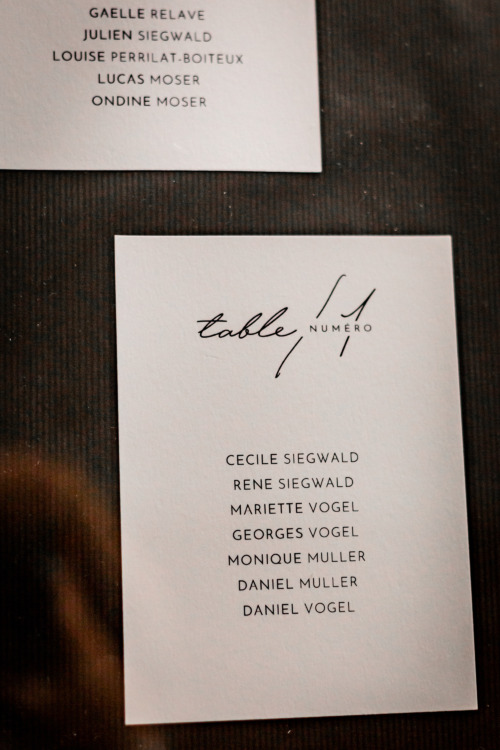 GAELLE RELAVE
JULIEN SIEGWALD
LOUISE PERRILAT-BOITEUX
LUCAS MOSER
ONDINE MOSER
table / 1
NUMÉRO
CECILE SIEGWALD
RENE SIEGWALD
MARIETTE VOGEL
GEORGES VOGEL
MONIQUE MULLER
DANIEL MULLER
DANIEL VOGEL